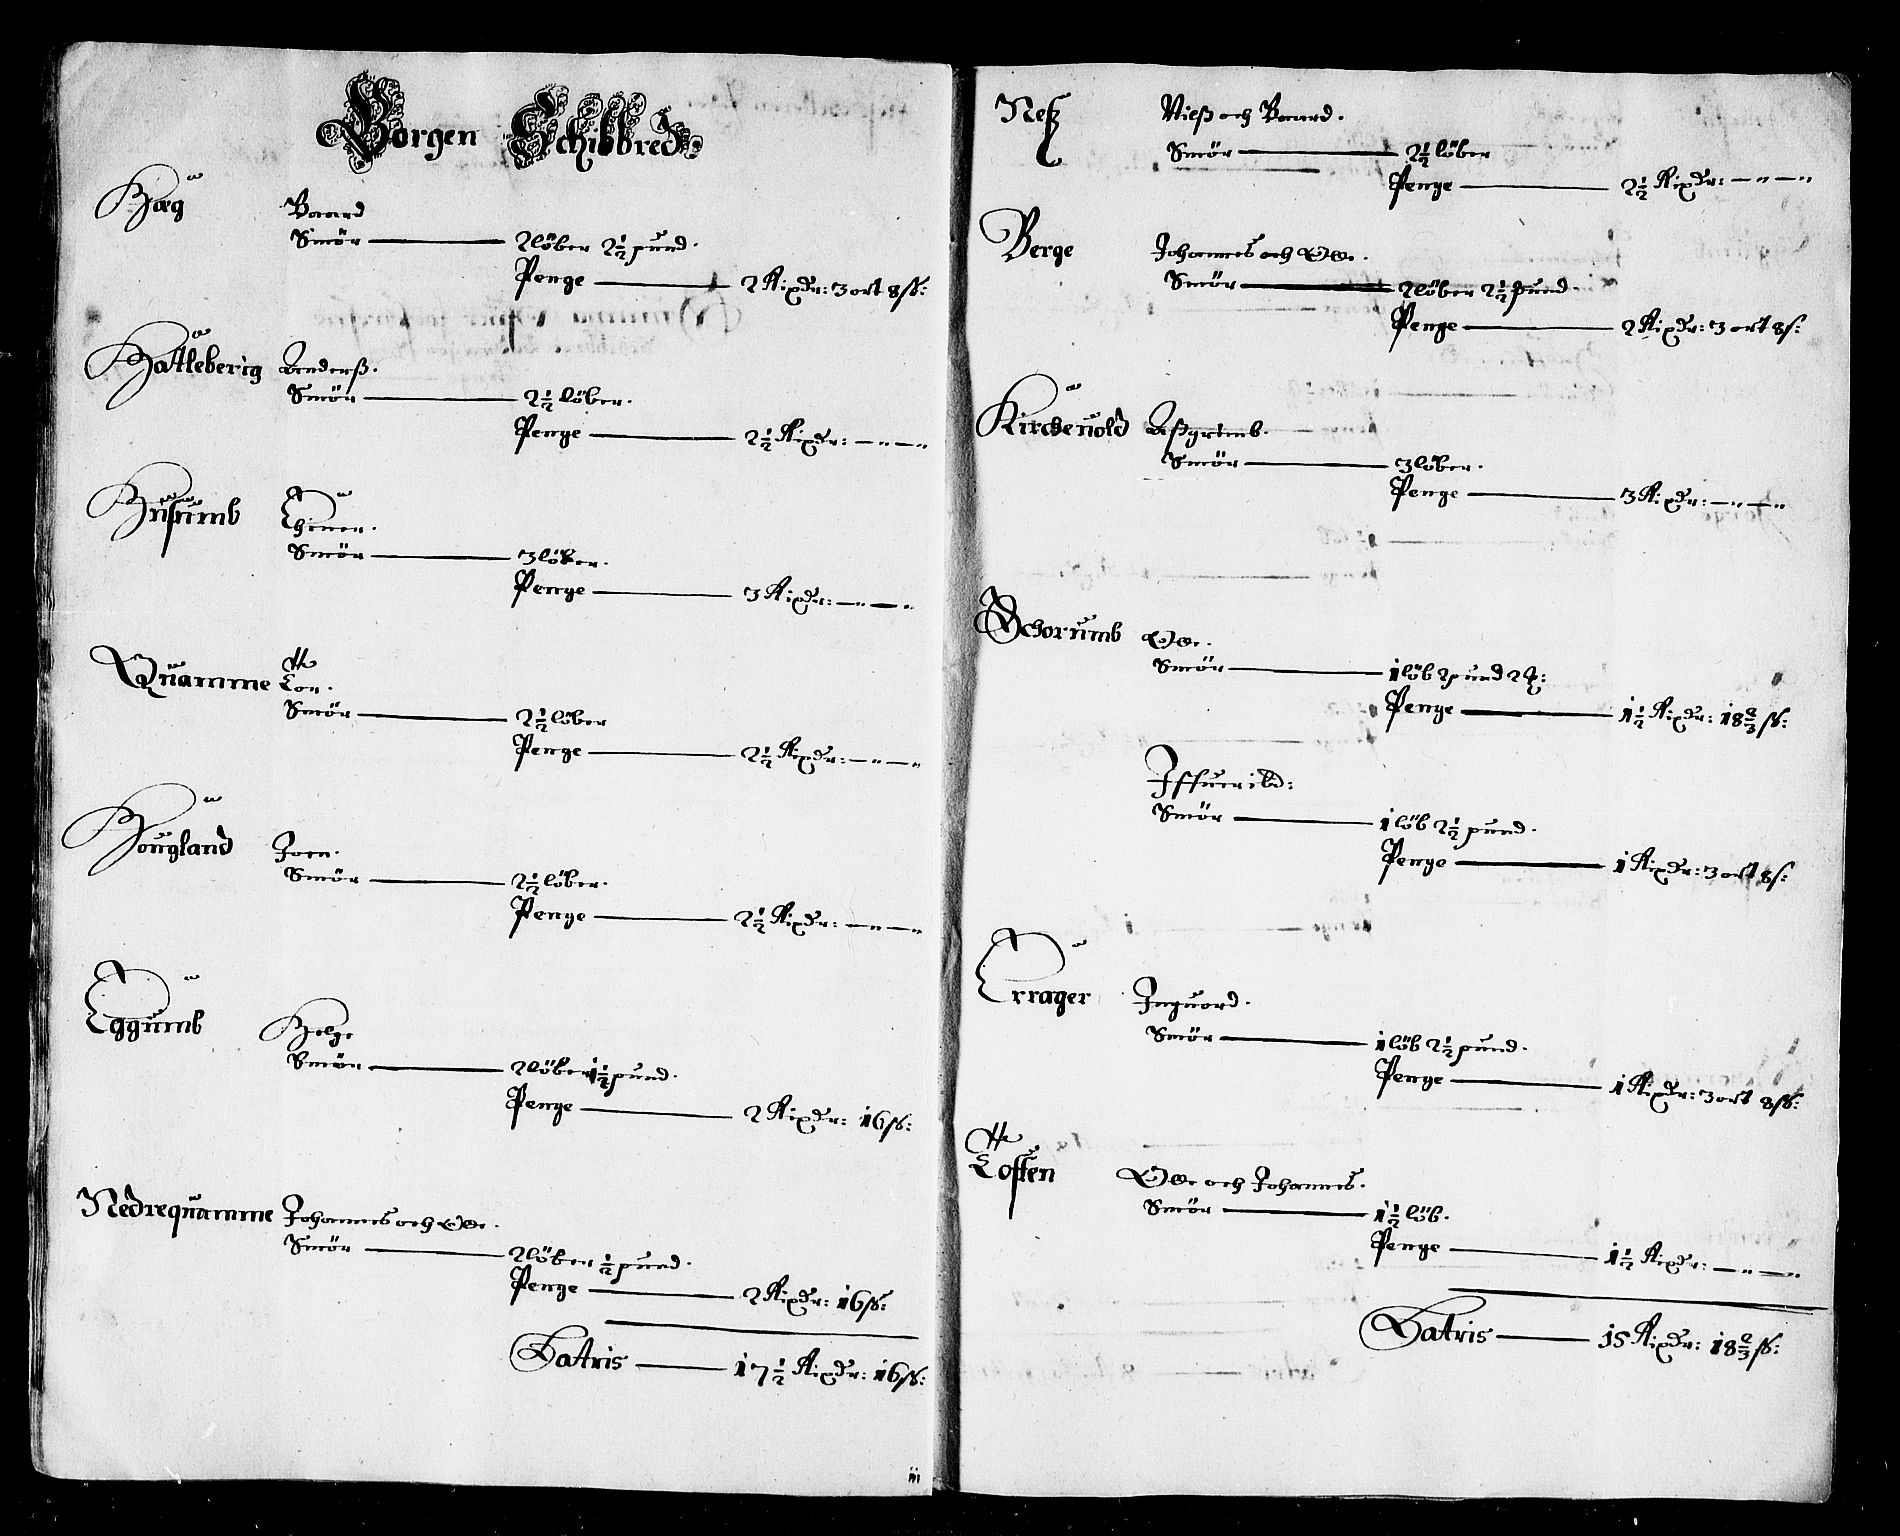 Borgen Schibbred
Hæg
Baard
Smör — 2 löber 2½ pund.
Penge — 2 Rixdr: 3 ort 8 ß:
Hatleberig Anderß.
Smör — 2½ löber.
Penge — 2½ Rixdr: — " — "
Husumb
Smör — 3 löber.
Penge — 3 Rixdr: — " — "
Quamme Tor.
Smör — 2½ löber
Penge — 2½ Rixdr: — " — "
Hougland Joen.
Smör — 2½ löber.
Penge — 2½ Rixdr: — " — "
Eggumb Helge
Smör — 2 löber 1½ pund.
Penge — 2 Rixdr: 16 ß:
Nedrequamme Johannes och Ole.
Smör — 2 löber ½ pund.
Penge — 2 Rixdr: 16 ß:
Latris — 17½ Rixdr: 16 ß:
iii
Neß Nielß och Baard.
Smör — 2½ löber
Penge — 2½ Rixdr: — " — "
Berge Johannes och Ole.
Smör — 2 löber 2½ pund.
Penge — 2 Rixdr: 3 ort 8 ß:
Kircheuold Aßgrimb.
Smör — 3 löber.
Penge — 3 Rixdr: — " — "
Schorumb Ole.
Smör — 1 löb 2 pund 2 ℔:
Penge — 1½ Rixdr: 18⅔ ß:
Iffuerild:
Smör — 1 löb 2½ pund.
Penge — 1 Rixdr: 3 ort 8 ß:
Errager Inguord.
Smör — 1 löb 2½ pund.
Penge — 1 Rixdr: 3 ort 8 ß:
Toften Ole och Johannes.
Smör — 1½ löb.
Penge — 1½ Rixdr: — " — "
Latris — 15 Rixdr: 18⅔ ß: